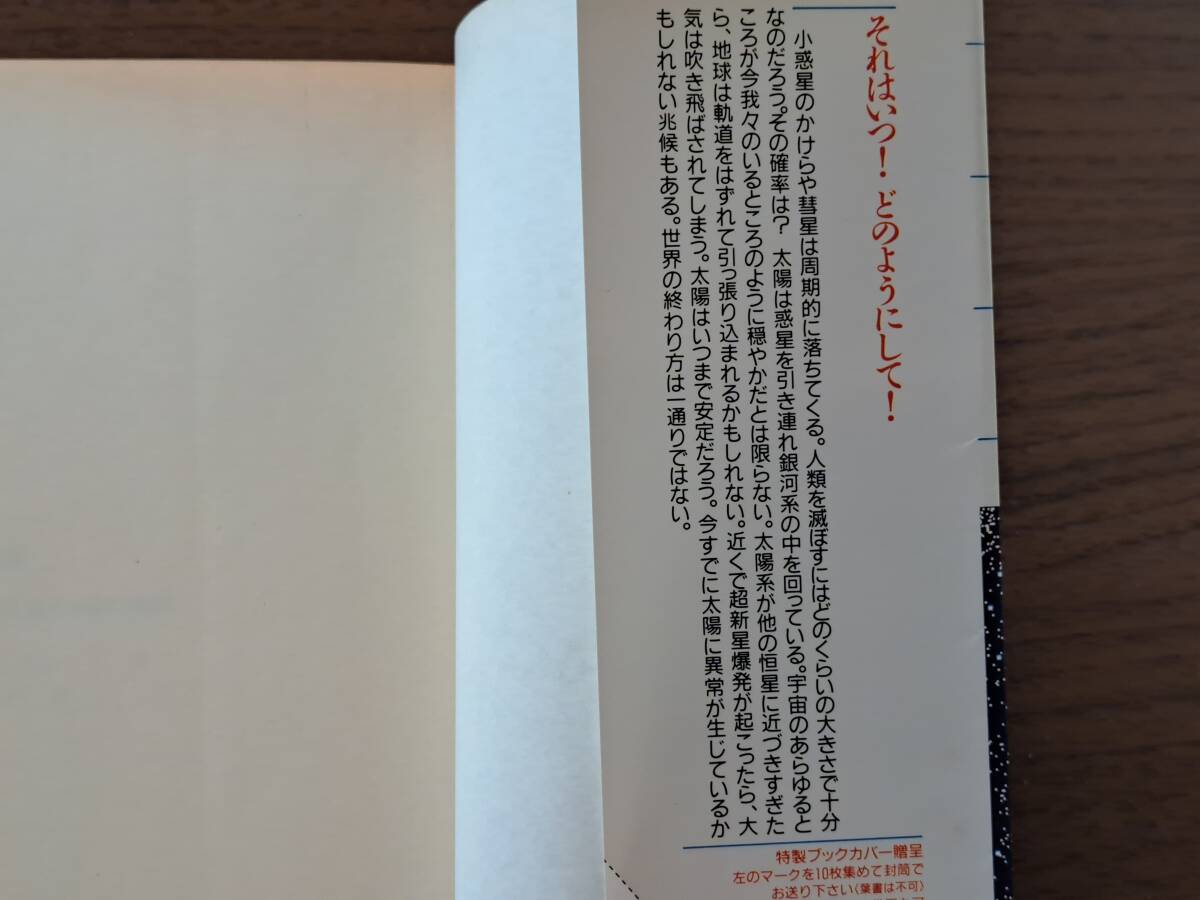 それはいつ！どのようにして！
小惑星のかけらや彗星は周期的に落ちてくる。人類を滅ぼすにはどのくらいの大きさで十分
なのだろう。その確率は？　太陽は惑星を引き連れ銀河系の中を回っている。宇宙のあらゆると
ころが今我々のいるところのように穏やかだとは限らない。太陽系が他の恒星に近づきすぎた
ら、地球は軌道をはずれて引っ張り込まれるかもしれない。近くで超新星爆発が起こったら、大
気は吹き飛ばされてしまう。太陽はいつまで安定だろう。今すでに太陽に異常が生じているか
もしれない兆候もある。世界の終わり方は一通りではない。
特製ブックカバー贈呈
左のマークを10枚集めて封筒で
お送り下さい〈葉書は不可〉